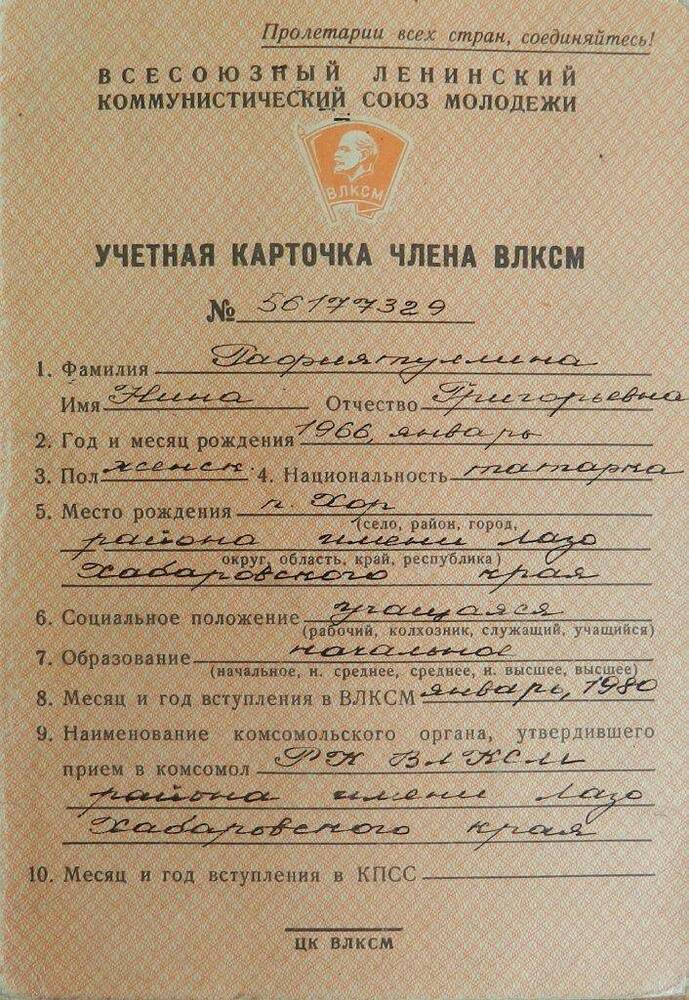 Пролетарии всех стран, соединяйтесь!
ВСЕСОЮЗНЫЙ ЛЕНИНСКИЙ
КОММУНИСТИЧЕСКИЙ СОЮЗ МОЛОДЕЖИ
ВЛКСМ
УЧЕТНАЯ КАРТОЧКА ЧЛЕНА ВЛКСМ
№ 56177329
1. Фамилия Гафиятуллина
Имя Нина Отчество Григорьевна
2. Год и месяц рождения 1966, январь
3. Пол женск 4. Национальность татарка
5. Место рождения п. Хор
(село, район, город,
района имени Лазо
округ, область, край, республика)
Хабаровского края
6. Социальное положение учащаяся
(рабочий, колхозник, служащий, учащийся)
7. Образование начальное
(начальное, н. среднее, среднее, н. высшее, высшее)
8. Месяц и год вступления в ВЛКСМ январь, 1980
9. Наименование комсомольского органа, утвердившего
прием в комсомол РК ВЛКСМ
района имени Лазо
Хабаровского края
10. Месяц и год вступления в КПСС
ЦК ВЛКСМ